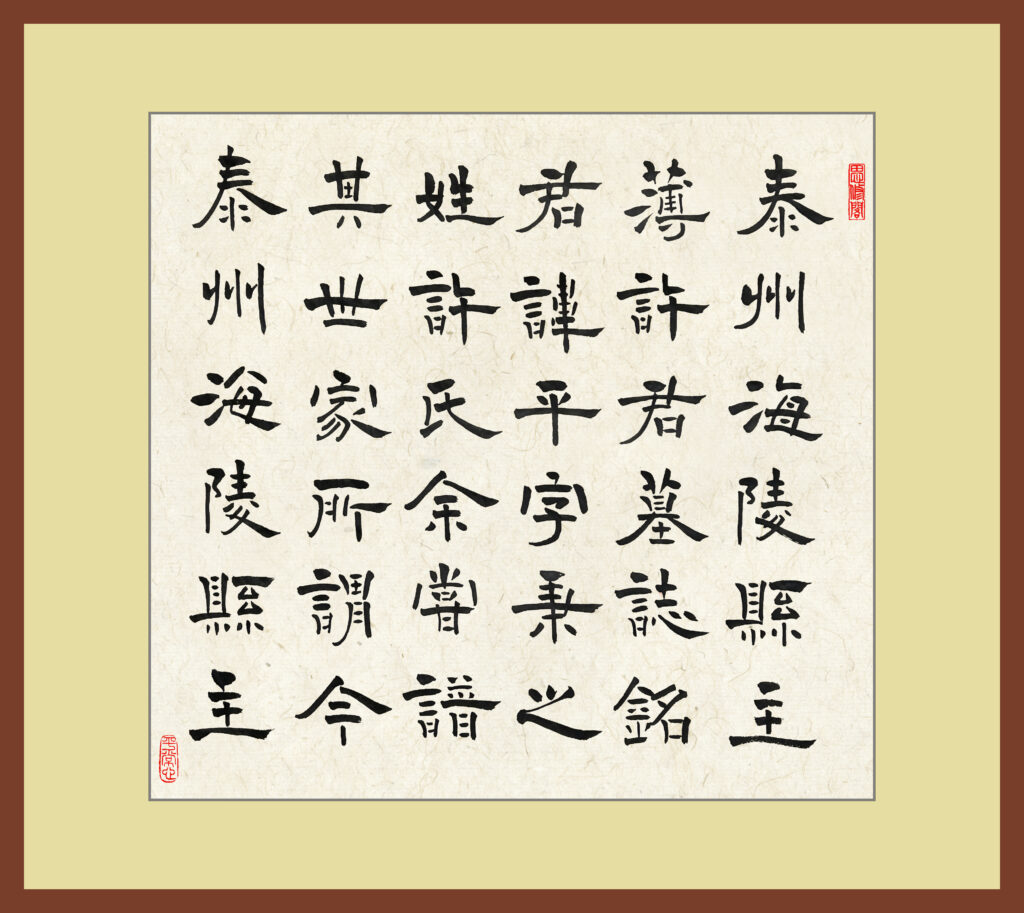 思修閣
泰州海陵縣主
薄許君墓誌銘
君諱平字秉之
姓許氏余嘗譜
其世家所謂今
泰州海陵縣主
平常心